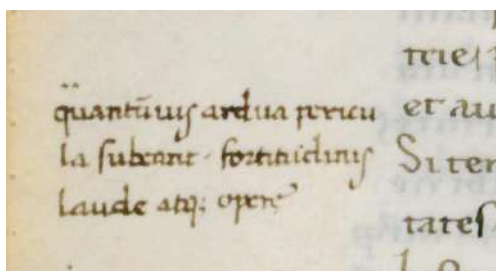 quantũuis ardua pericu
la subeant · fortitudinis
laude atq; opere
tcie
et au
Si ter
tates